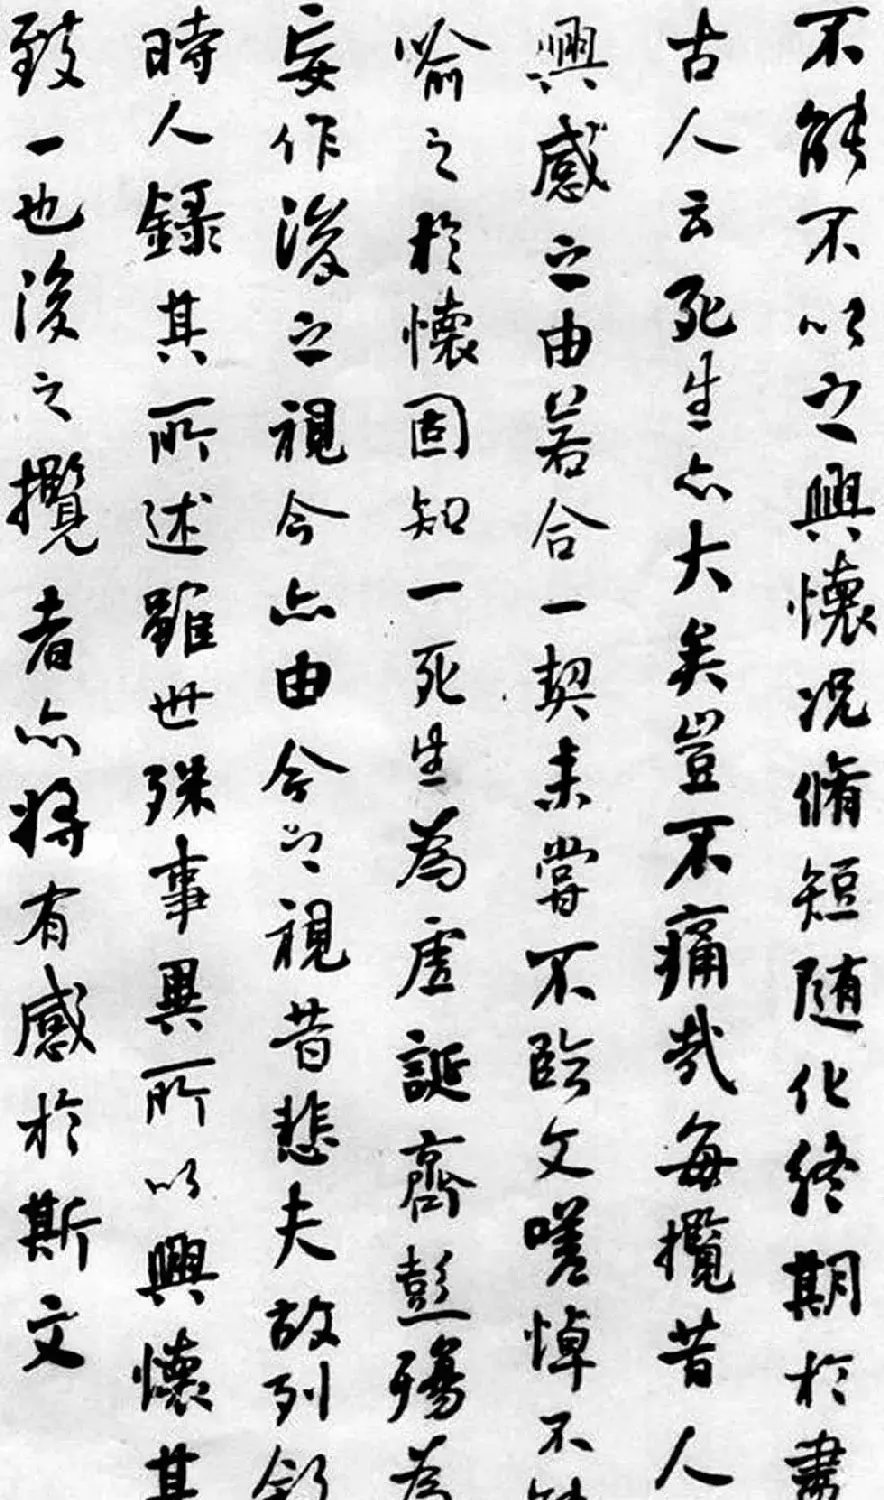 不能不以之興懷况脩短隨化終期於盡
古人云死生亦大矣豈不痛哉每攬昔人
興感之由若合一契未嘗不臨文嗟悼不能
喻之於懷固知一死生為虛誕齊彭殤為
妄作後之視今亦由今之視昔悲夫故列敘
時人錄其所述雖世殊事異所以興懷其
致一也後之攬者亦將有感於斯文